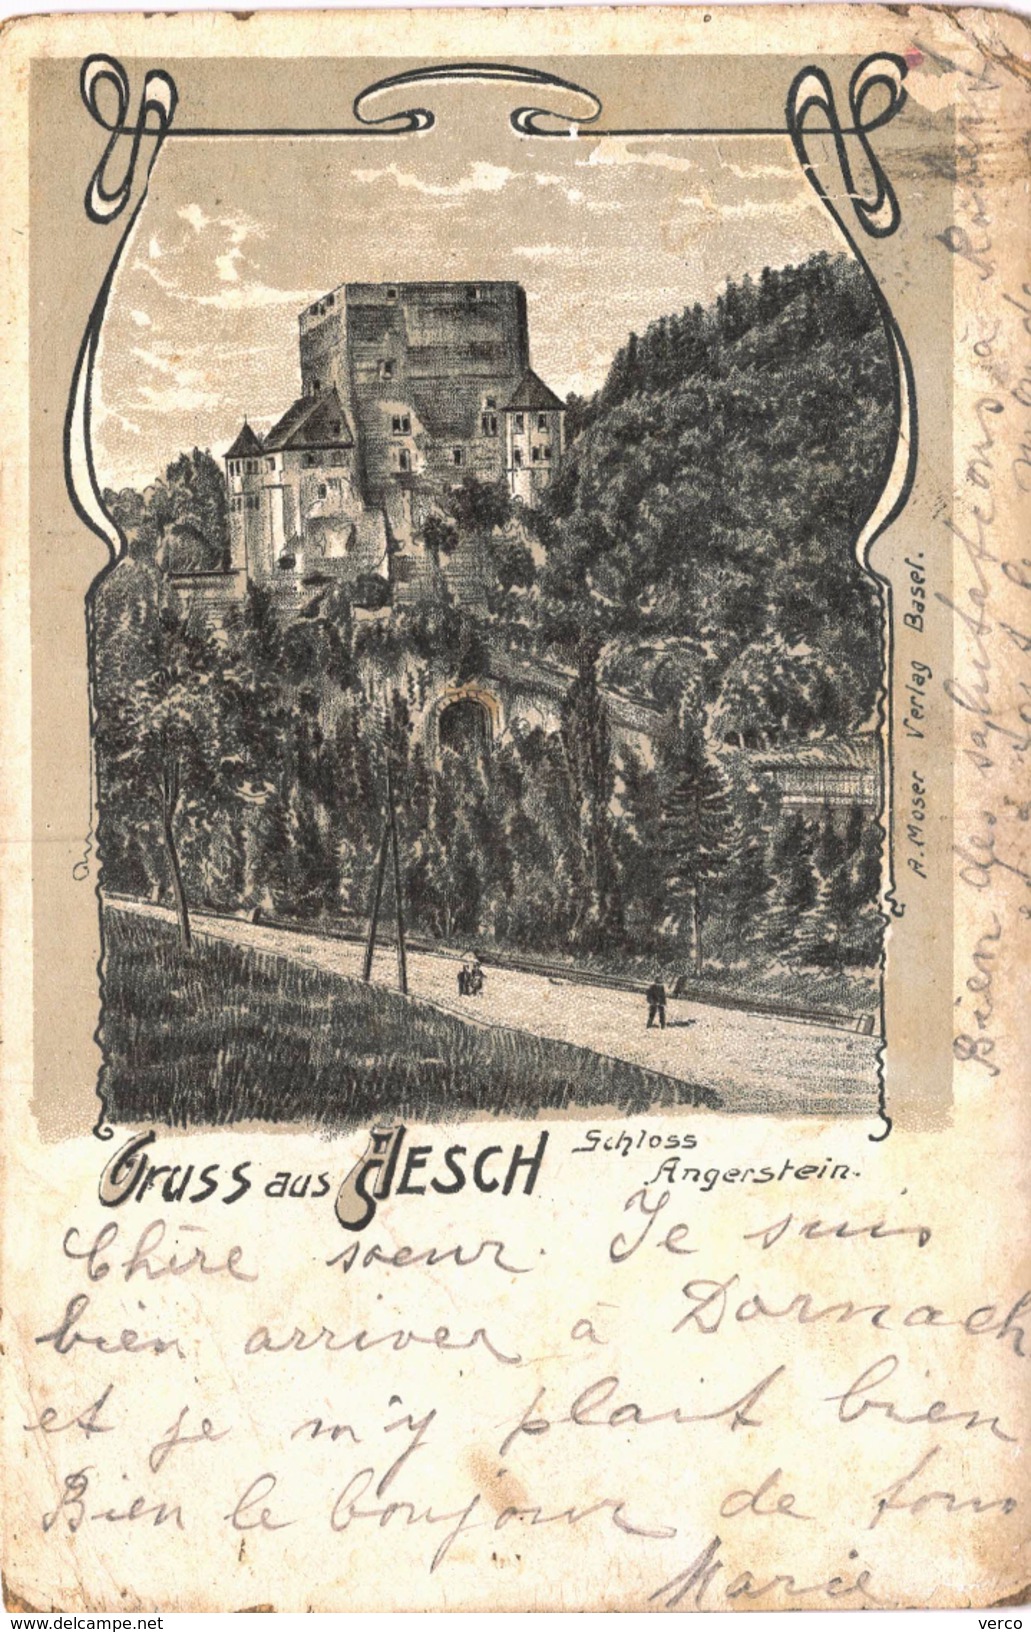 GRUSS aus AESCH
Schloss
Angerstein.
A. Moser Verlag Basel.
Chère soeur. Je suis
bien arriver à Dornach
et je m'y plait bien
Bien le bonjour de tous
Marie
Bien des saplutations à
delcampe.net
verco